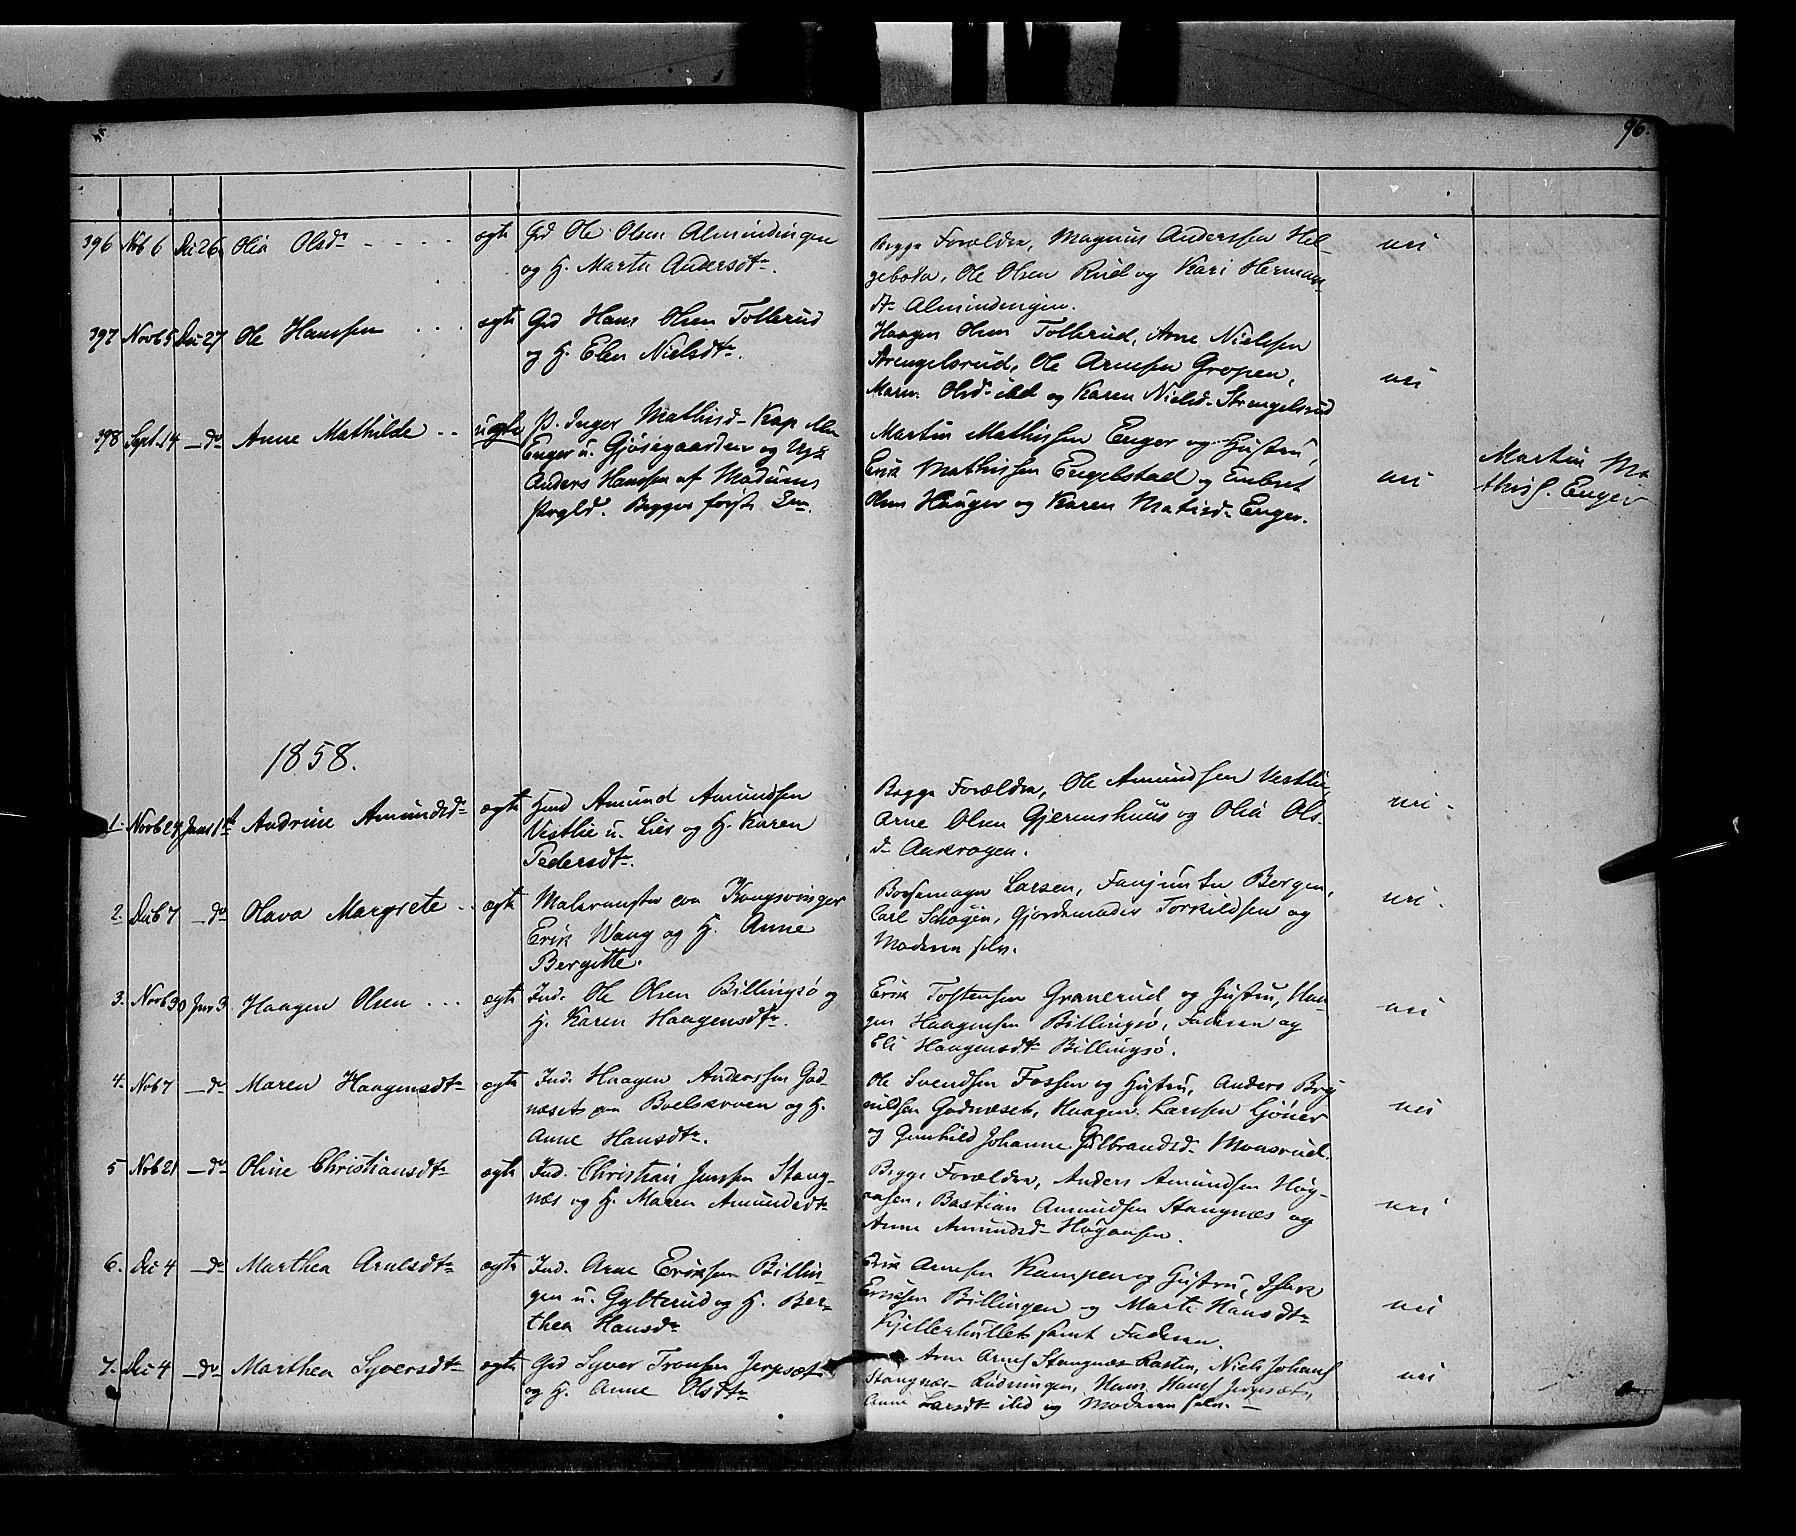 96.
396 Nvb 6 De 26 Olia Olsdr - - - - ægte Grd Ole Olsen Almindingen
og H. Marta Andersdtr.
Begge Forældre, Magnus Anderssen Hel-
gebosta, Ole Olsen Rud og Kari Herman-
dtr Almindengen.
nei
397 Novb 5 De 27 Ole Hanssen . . . ægte Grd Hans Olsen Tollerud
og H. Elen Nielsdtr.
Haagen Olsen Tollerud, Arne Nielssen
Strengelsrud, Ole Arnesen Gropen,
Maren Olsd ibd og Karen Nielsd- Strengelsrud
nei
398 Sept. 14 - do Anne Mathilde . . uægte P. Inger Mathisd- Kap
Enger u. Gjøsegaarden og
Anders Hanssen af Modums
Prgld. Begges første
Martin Mathissen Enger og Hustru,
Erik Mathissen Engelstad og Embret
Olsen Hauger og Karen Matisd- Enger.
nei
Martin Ma-
thiss. Enger
1858.
1. Novb 24 Janr 1st Andrine Amundsdr ægte Hmd Amund Amundsen
Vestlie u. Lier og H. Karen
Pedersdtr.
Begge Forældre, Ole Amundsen Vestlie,
Arne Olsen Gjermshuus og Olia Ols-
dr Aaskrogen.
nei -
2. Deb 7 - do Olava Margrete . . ægte Malermester paa Kongsvinger
Erik Wang og H. Anne
Bergitte.
Bogsemager Larsen, Bergen,
Carl Schøgen, Gjordemoder Torkildsen og
Moderen selv.
nei.
3. Novb 30 Janr 3. Haagen Olsen . . . ægte Ind. Ole Olsen Billingsø og
H. Karen Haagensdtr.
Erik Tostensen Granerud og Hustru, Haa-
gen Haagensen Billingsø, Faderen og
Eli Haagensdtr Billingsø.
nei
4. Nvb 7 - do Maren Haagensdtr ægte Ind. Haagen Anderssen God-
næset paa Boelskroen og H.
Anne Hansdtr.
Ole Svendsen Fossen og Hustru, Anders Bry-
nildsen Godnæset, Haagen Larssen Ljøner
og Gunhild Johanne Gulbrandsd- Monsrud.
nei
5 Nvb 21 - do Oline Christiansdtr ægte Ind. Christian Jenssen Stang-
næs og H. Maren Amundsdtr
Begge Forældre, Anders Amundsen Høg-
aasen, Bastian Amundsen Stangnæs og
Anne Amundsd- Høgaasen.
nei
6. De 4 - do Marthea Arnesdtr ægte Ind. Arne Eriksen Billin-
gen u. Gylterud og H. Ber-
thea Hansdr
Erik Arnesen Kampen og Hustru, Isak
Eriksen Billingen og Marte Hansdtr
Kjellerhullet samt Faderen.
nei
7. De 4 - do Marthea Syversdtr ægte Grd Syver Tronsen Jerpset
og H. Anne Olsdtr
Arne Arness Stangnæs Rasten, Niels Johans
Stangnæs Rudningen, Hans Hanss Jerpset,
Anne Larsdtr ibd og Moderen selv. -
nei